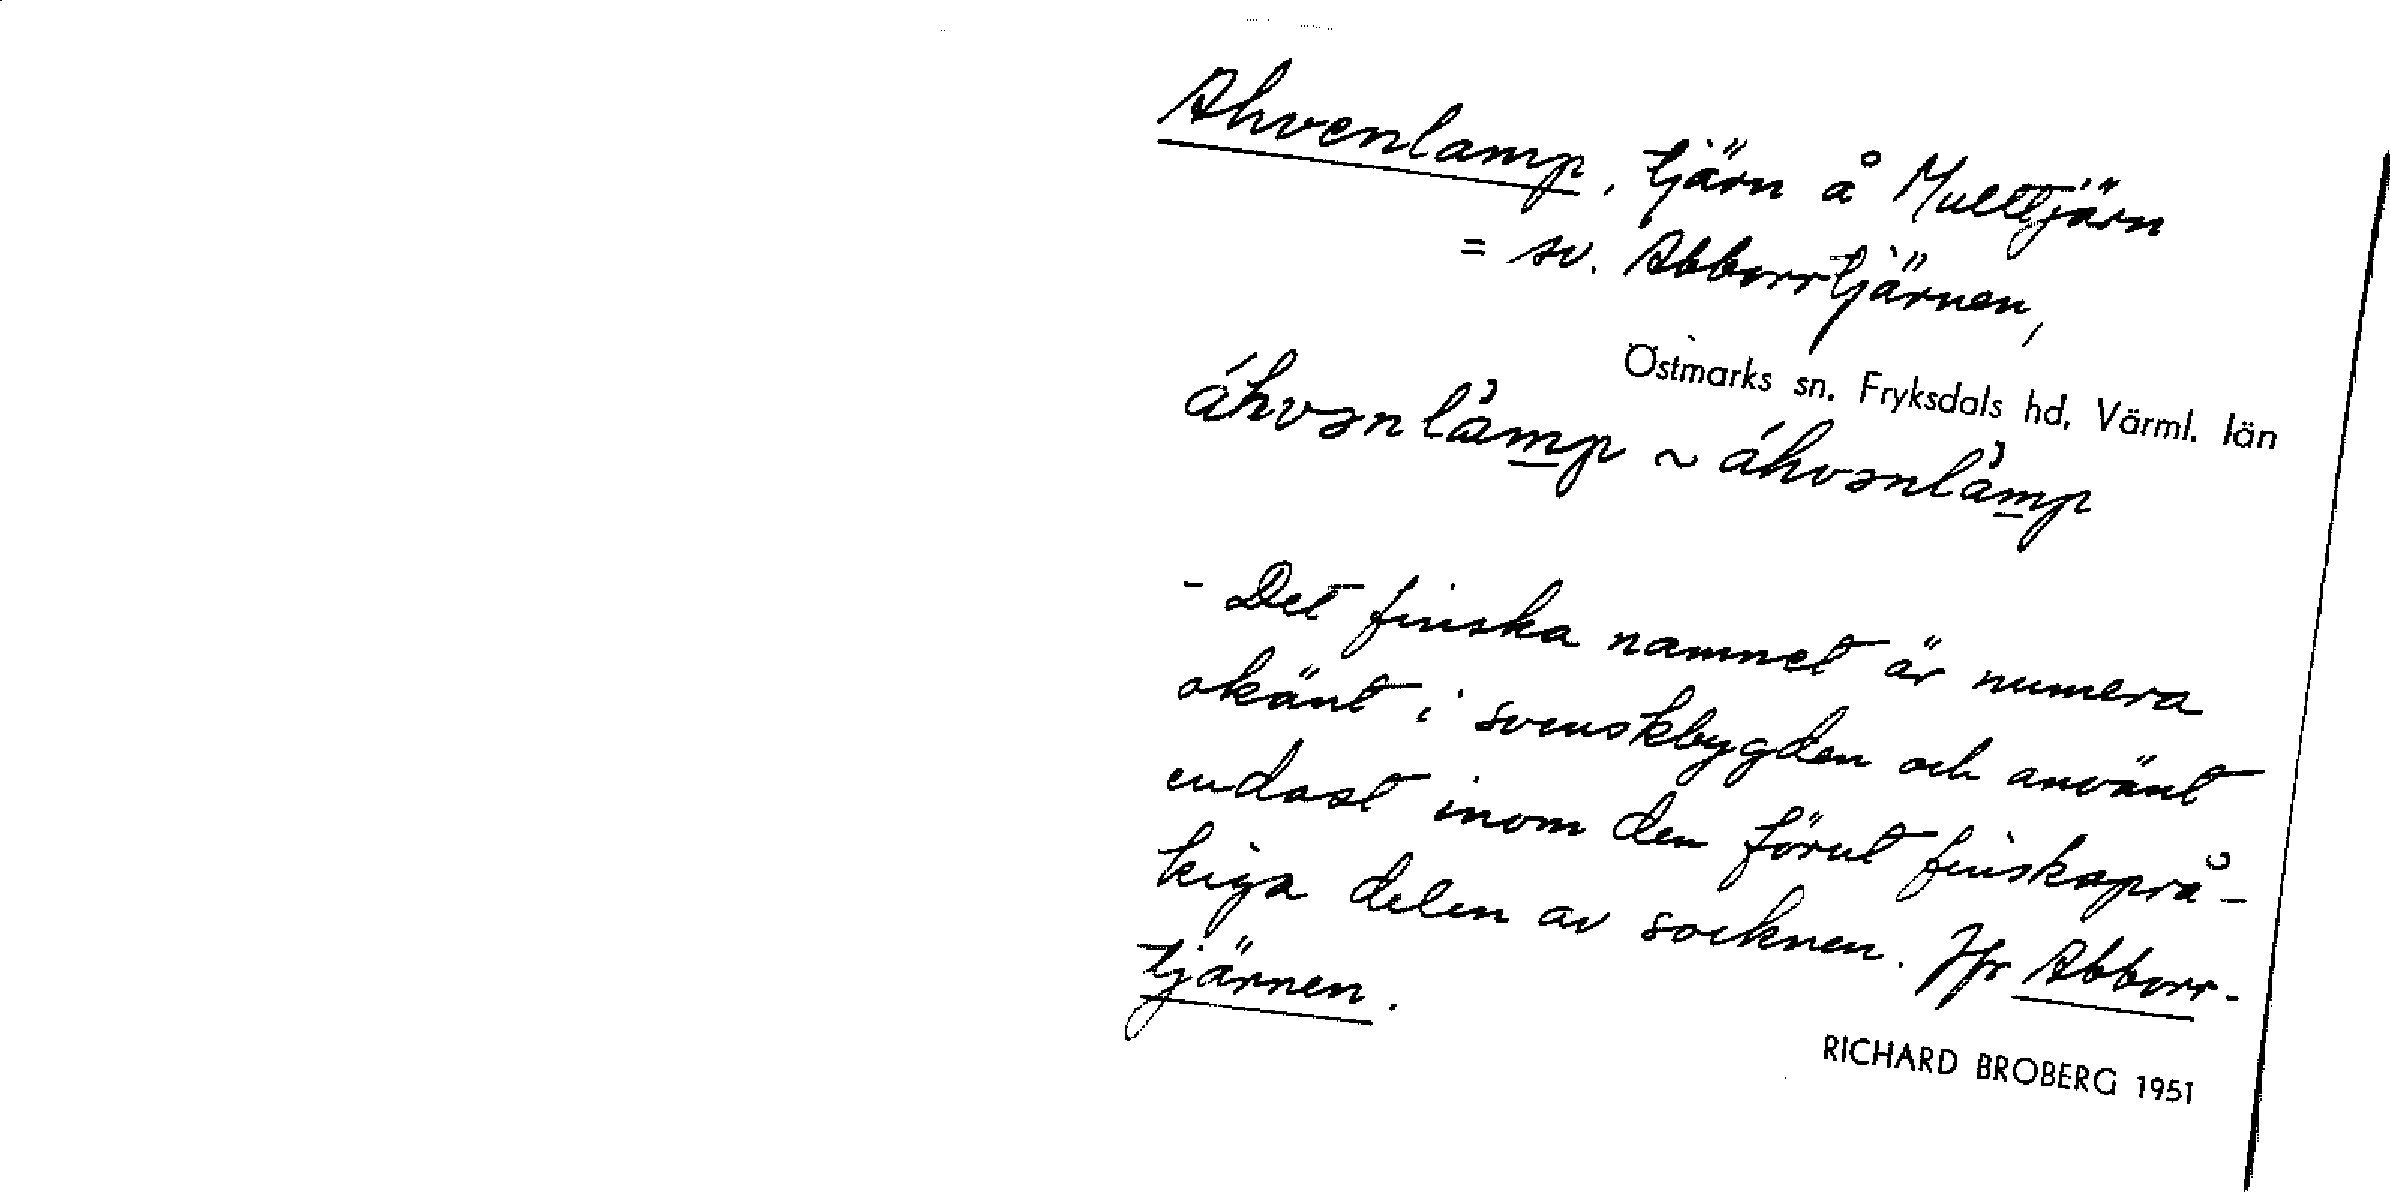 Ahvenlamp, tjärn å Multtjärn
= sv. Abborrtjärnen,
Östmarks sn. Fryksdals hd. Värml. län
áhvənlàmp ~ áhvənlàmp
- Det finska namnet är numera
okänt i svenskbygden och använt
endast inom den förut finskaprå-
kiga delen av socknen. Jfr Abborr-
tjärnen.
RICHARD BROBERG 1951